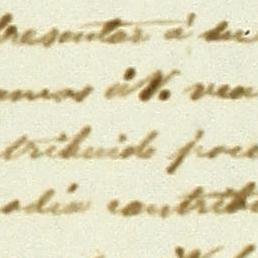 presentar á su
amos á V. ven
tribuido poco
odia contrib